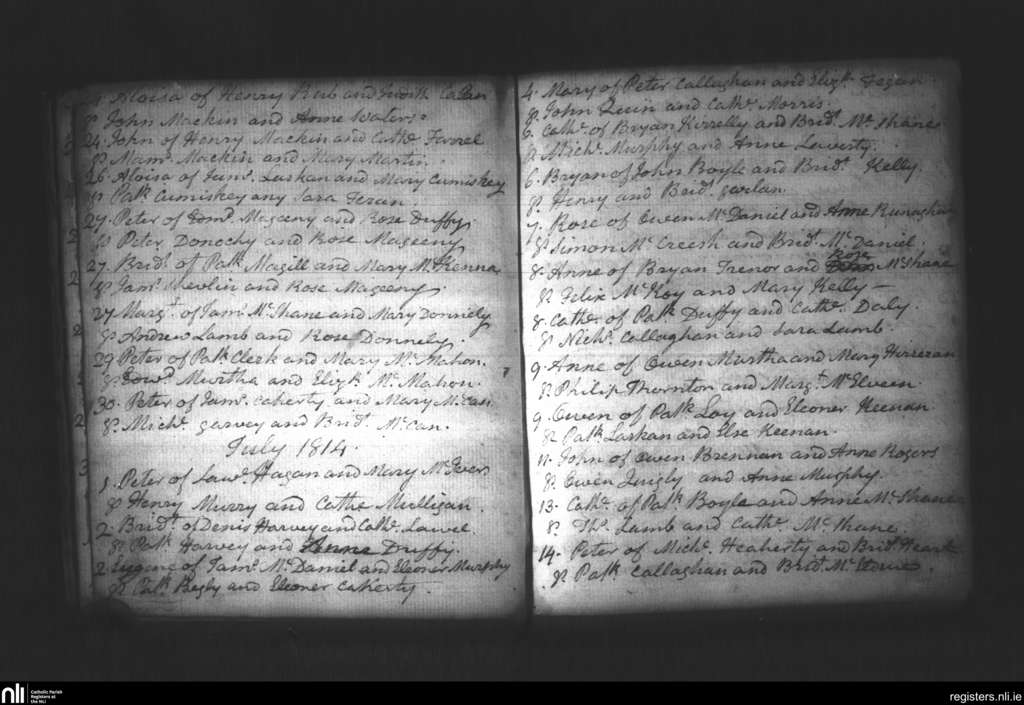 Aloisa of Henry and Caban
Sp John Mackin and Anne Waters
24. John of Henry Mackin and Cathe. Farrel
Sp Mam. Mackin and Mary Martin.
26. Aloisa of Jams. Laskan and Mary Cumiskey
Sp Patk. Cumiskey any Sara Feran.
27. Peter of Tom. Mageeny and Rose Duffy.
Sp Peter Donochy and Rose Mageeny
27. Bridt. of Patk. Magill and Mary McKenna
Sp Jams. Mevlin and Rose Mageeny.
27 Margt. of Jams. McShane and Mary Donnely
Sp Andrew Lamb and Rose Donnely.
29 Peter of Patk. Clerk and Mary McMahon.
Sp Edwd. Murtha and Elizh. McMahon.
30. Peter of Jams. Caherty and Mary McCan
Sp Michl. Garvey and Bridt. McCan.
July 1814.
1. Peter of Lawe. Hagan and Mary McIver
Sp Henry Murry and Cathe Mulligan.
2. Bridt. of Denis Harvey and Cathe. Lawel
Sp Patk Harvey and Anne Duffy.
2 of Jams. McDaniel and Eleoner Murphy
Sp Patk. Begly and Eleoner Caherty.
4. Mary of Peter Callaghan and Elizh. Fegan.
Sp John Quin and Cathe. Morris.
6. Cathe. of Bryan Kirrelly and Bridt. McShane
Sp Michl. Murphy and Anne Laverty.
6. Bryan of John Boyle and Bridt. Kelly.
Sp Henry and Bridt. Gorlan.
7. Rose of Owen McDaniel and Anne Runaghan
Sp Simon McCreesh and Bridt. McDaniel.
8. Anne of Bryan Trenor and Rose McShane
Sp Felix McKoy and Mary Kelly —
8. Cathe. of Patk Duffy and Cathe. Daly.
Sp Nichs. Callaghan and Sara Lamb.
9. Anne of Owen Murtha and Mary
Sp Philip Thornton and Margt. McElveen
9. Owen of Patk Loy and Eleoner Keenan
Sp Patk Laskan and Else Keenan.
11. John of Owen Brennan and Anne Rogers
Sp Owen Quigly and Anne Murphy.
13. Cathe. of Patk. Boyle and Anne McShane
Sp Ths. Lamb and Cathe. McShane.
14. Peter of Michl. Heaherty and Bridt. Heart
Sp Patk Callaghan and Bridt.
nli
Catholic Parish
Registers at
the NLI
registers.nli.ie